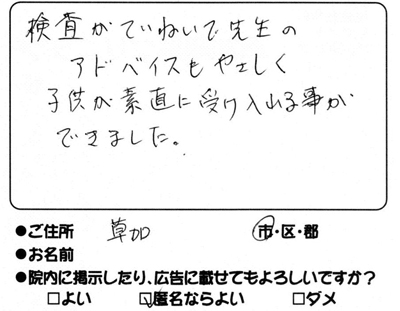 検査がていねいで先生の
アドバイスもやさしく
子供が素直に受け入れる事が
できました。
●ご住所 草加 市・区・郡
●お名前
●院内に掲示したり、広告に載せてもよろしいですか?
□よい ☑匿名ならよい □ダメ